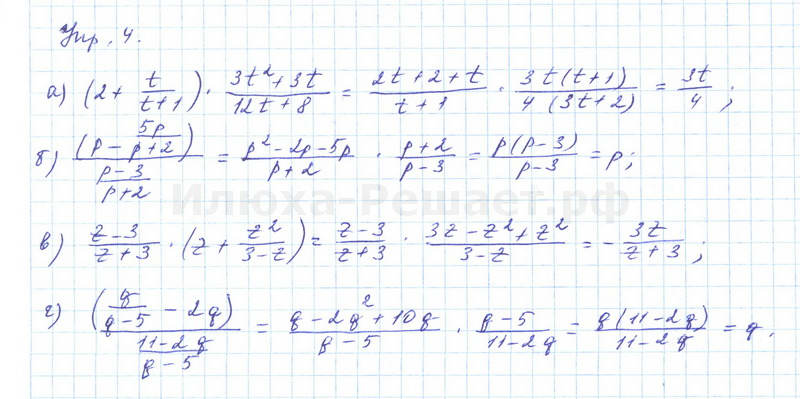 Упр. 4.
а) (2 + t/(t+1)) · (3t² + 3t)/(12t + 8) = (2t + 2 + t)/(t + 1) · (3t(t+1))/(4(3t+2)) = 3t/4 ;
б) (p − 5p/(p+2))/((p−3)/(p+2)) = (p² − 2p − 5p)/(p+2) · (p+2)/(p−3) = (p(p−3))/(p−3) = p;
Илюха-Решает.рф
в) (z−3)/(z+3) · (z + z²/(3−z)) = (z−3)/(z+3) · (3z − z² + z²)/(3−z) = − 3z/(z+3) ;
г) (q/(q−5) − 2q)/((11−2q)/(q−5)) = (q − 2q² + 10q)/(q−5) · (q−5)/(11−2q) = (q(11−2q))/(11−2q) = q.